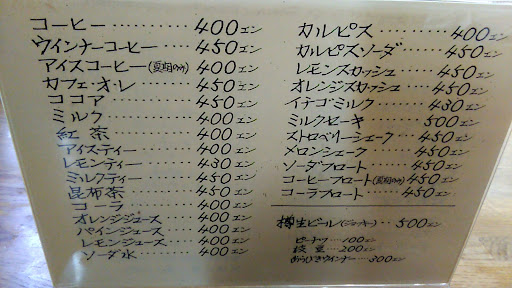 コーヒー……400エン
ウインナーコーヒー……450エン
アイスコーヒー(夏期のみ)400エン
カフェ・オ・レ……450エン
ココア……450エン
ミルク……400エン
紅茶……400エン
アイスティー……400エン
レモンティー……430エン
ミルクティー……450エン
昆布茶……450エン
コーラ……400エン
オレンジジュース……400エン
パインジュース……400エン
レモンジュース……400エン
ソーダ水……400エン
カルピス……400エン
カルピスソーダ……450エン
レモンスカッシュ……450エン
オレンジスカッシュ……450エン
イチゴミルク……430エン
ミルクセーキ……500エン
ストロベリーシェーク……450エン
メロンシェーク……450エン
ソーダフロート……450エン
コーヒーフロート(夏期のみ)450エン
コーラフロート……450エン
樽生ビール(ジョッキー)……500エン
ピーナツ……100エン
枝豆……200エン
あらびきウインナー……300エン